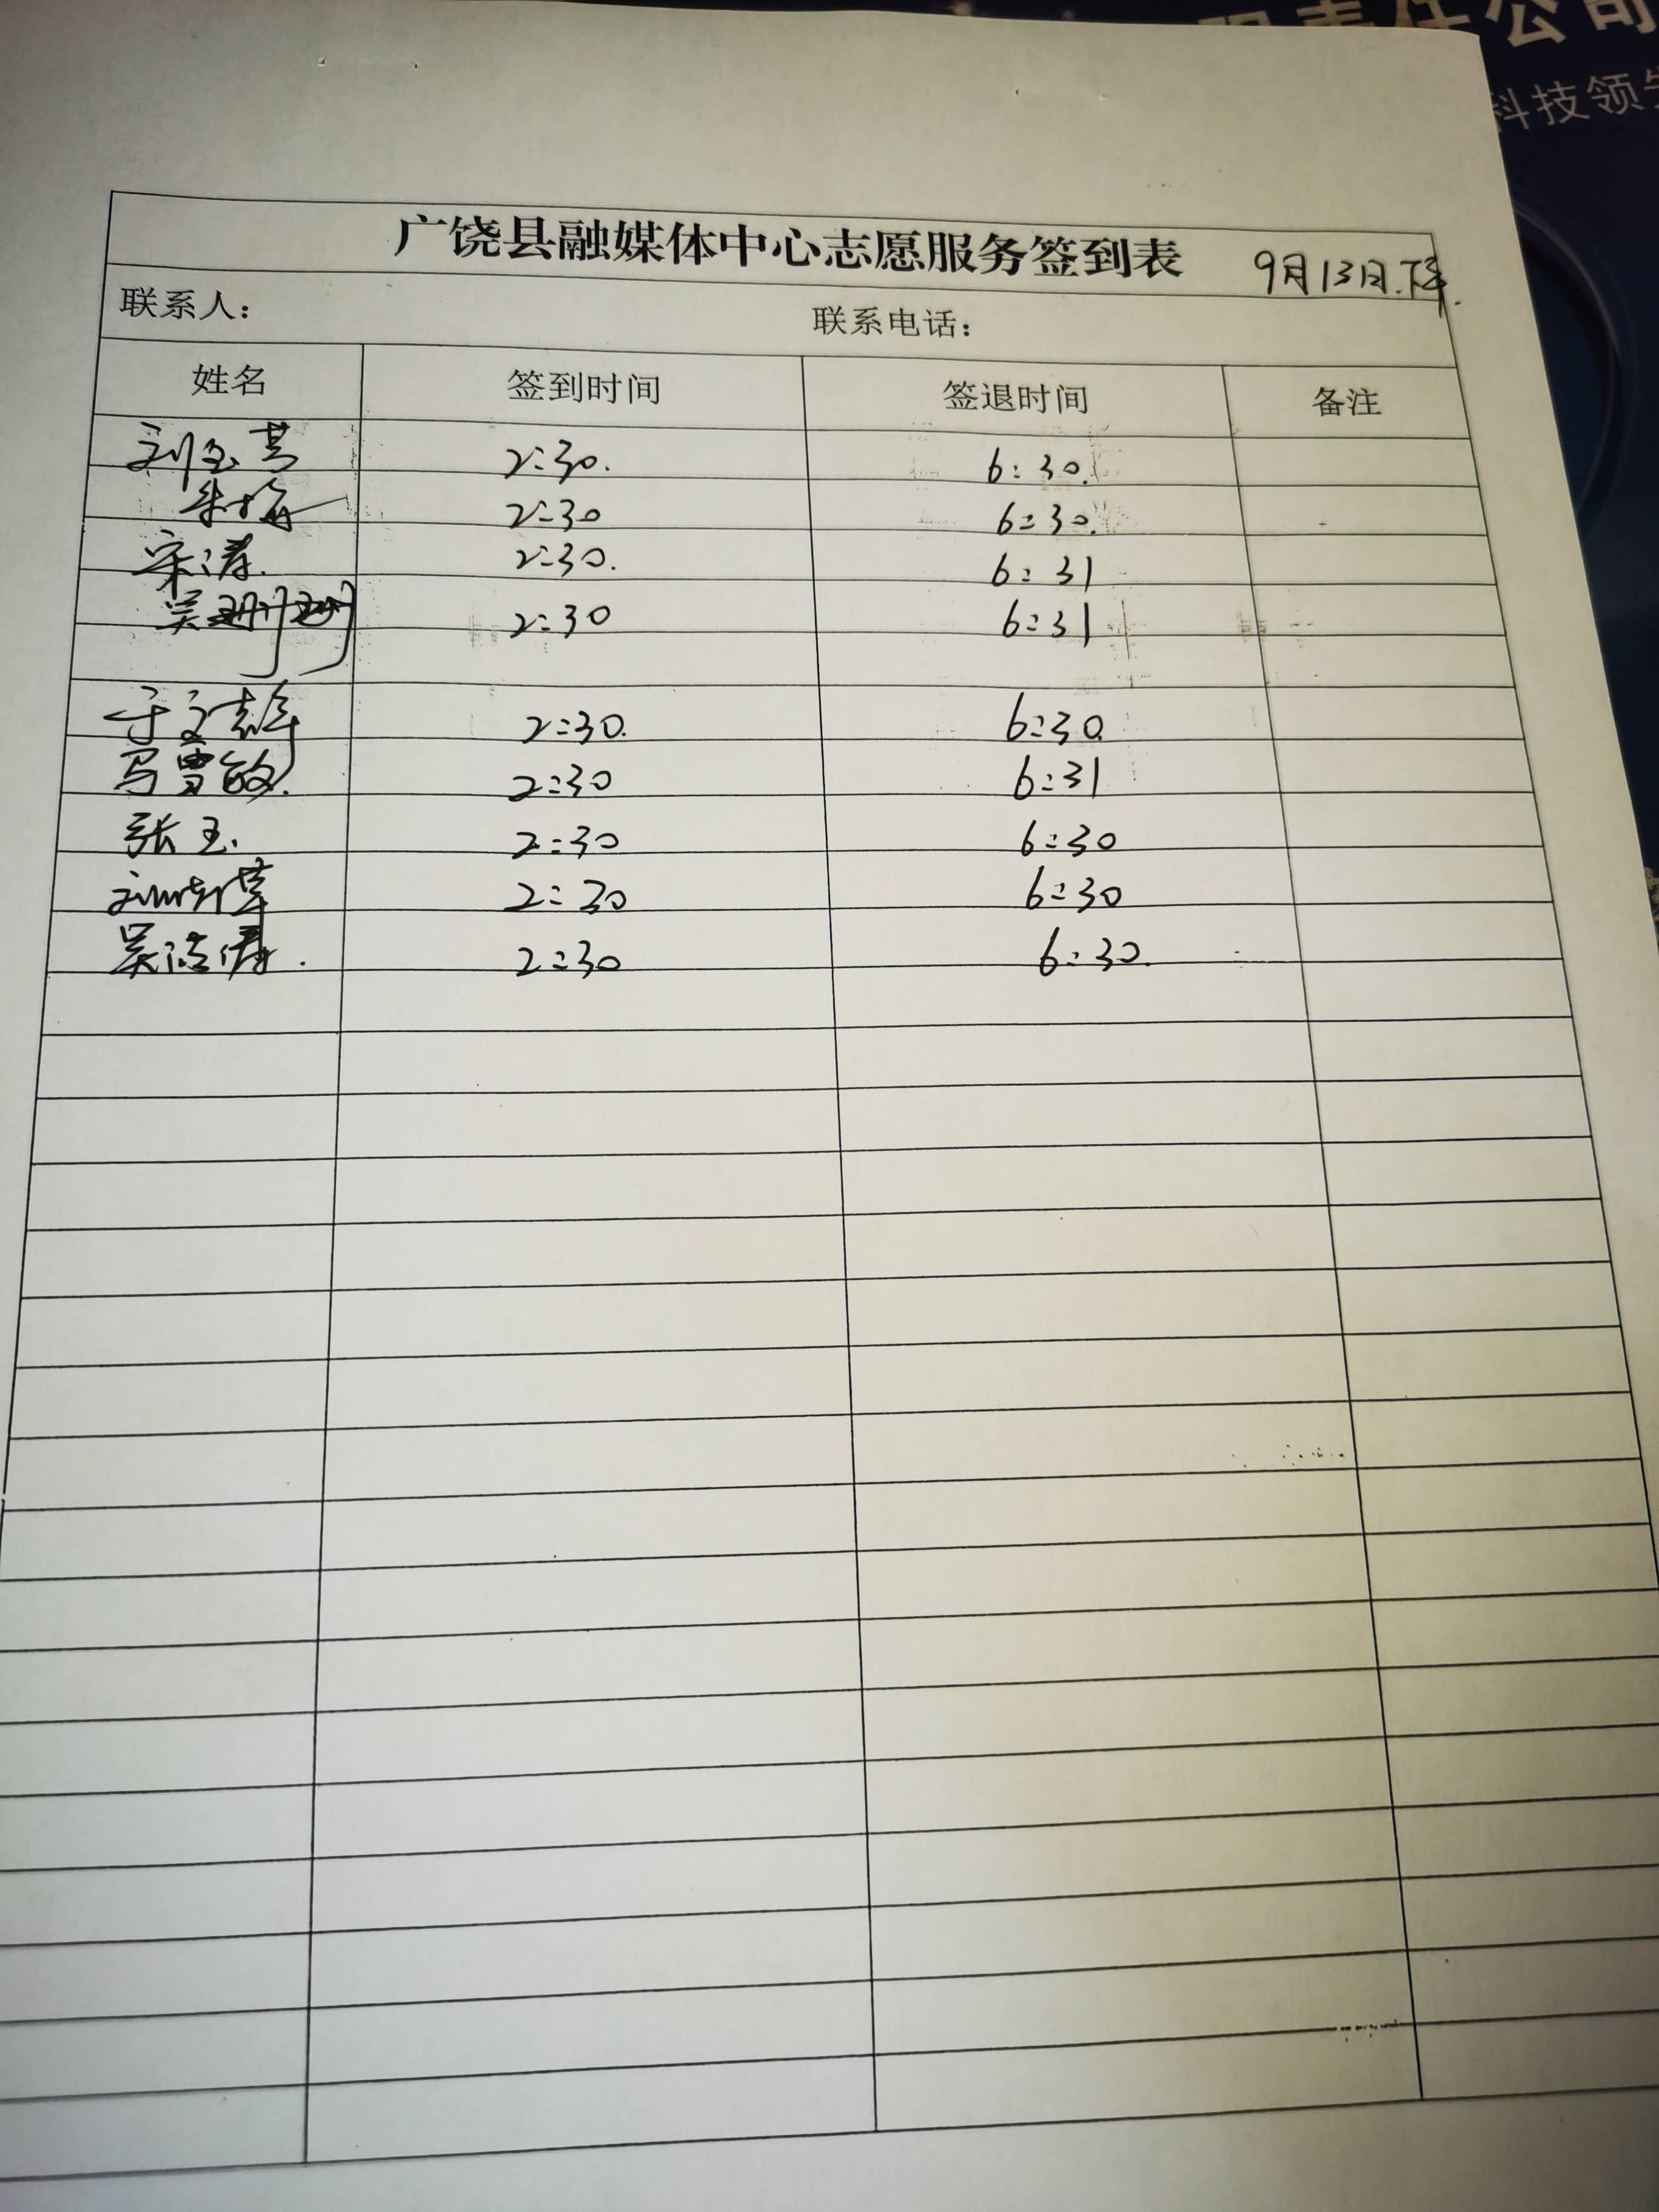 责任公司
科技领先
广饶县融媒体中心志愿服务签到表 9月13日.下午.
联系人： 联系电话：
姓名 签到时间 签退时间 备注
刘玉 2:30. 6:30.
朱梅 2:30 6:30.
宋涛. 2:30. 6:31
吴珊珊 2:30 6:31
于文 2:30. 6:30.
马曾敏. 2:30 6:31
张玉. 2:30 6:30
2:30 6:30
吴浩 . 2:30 6:30.